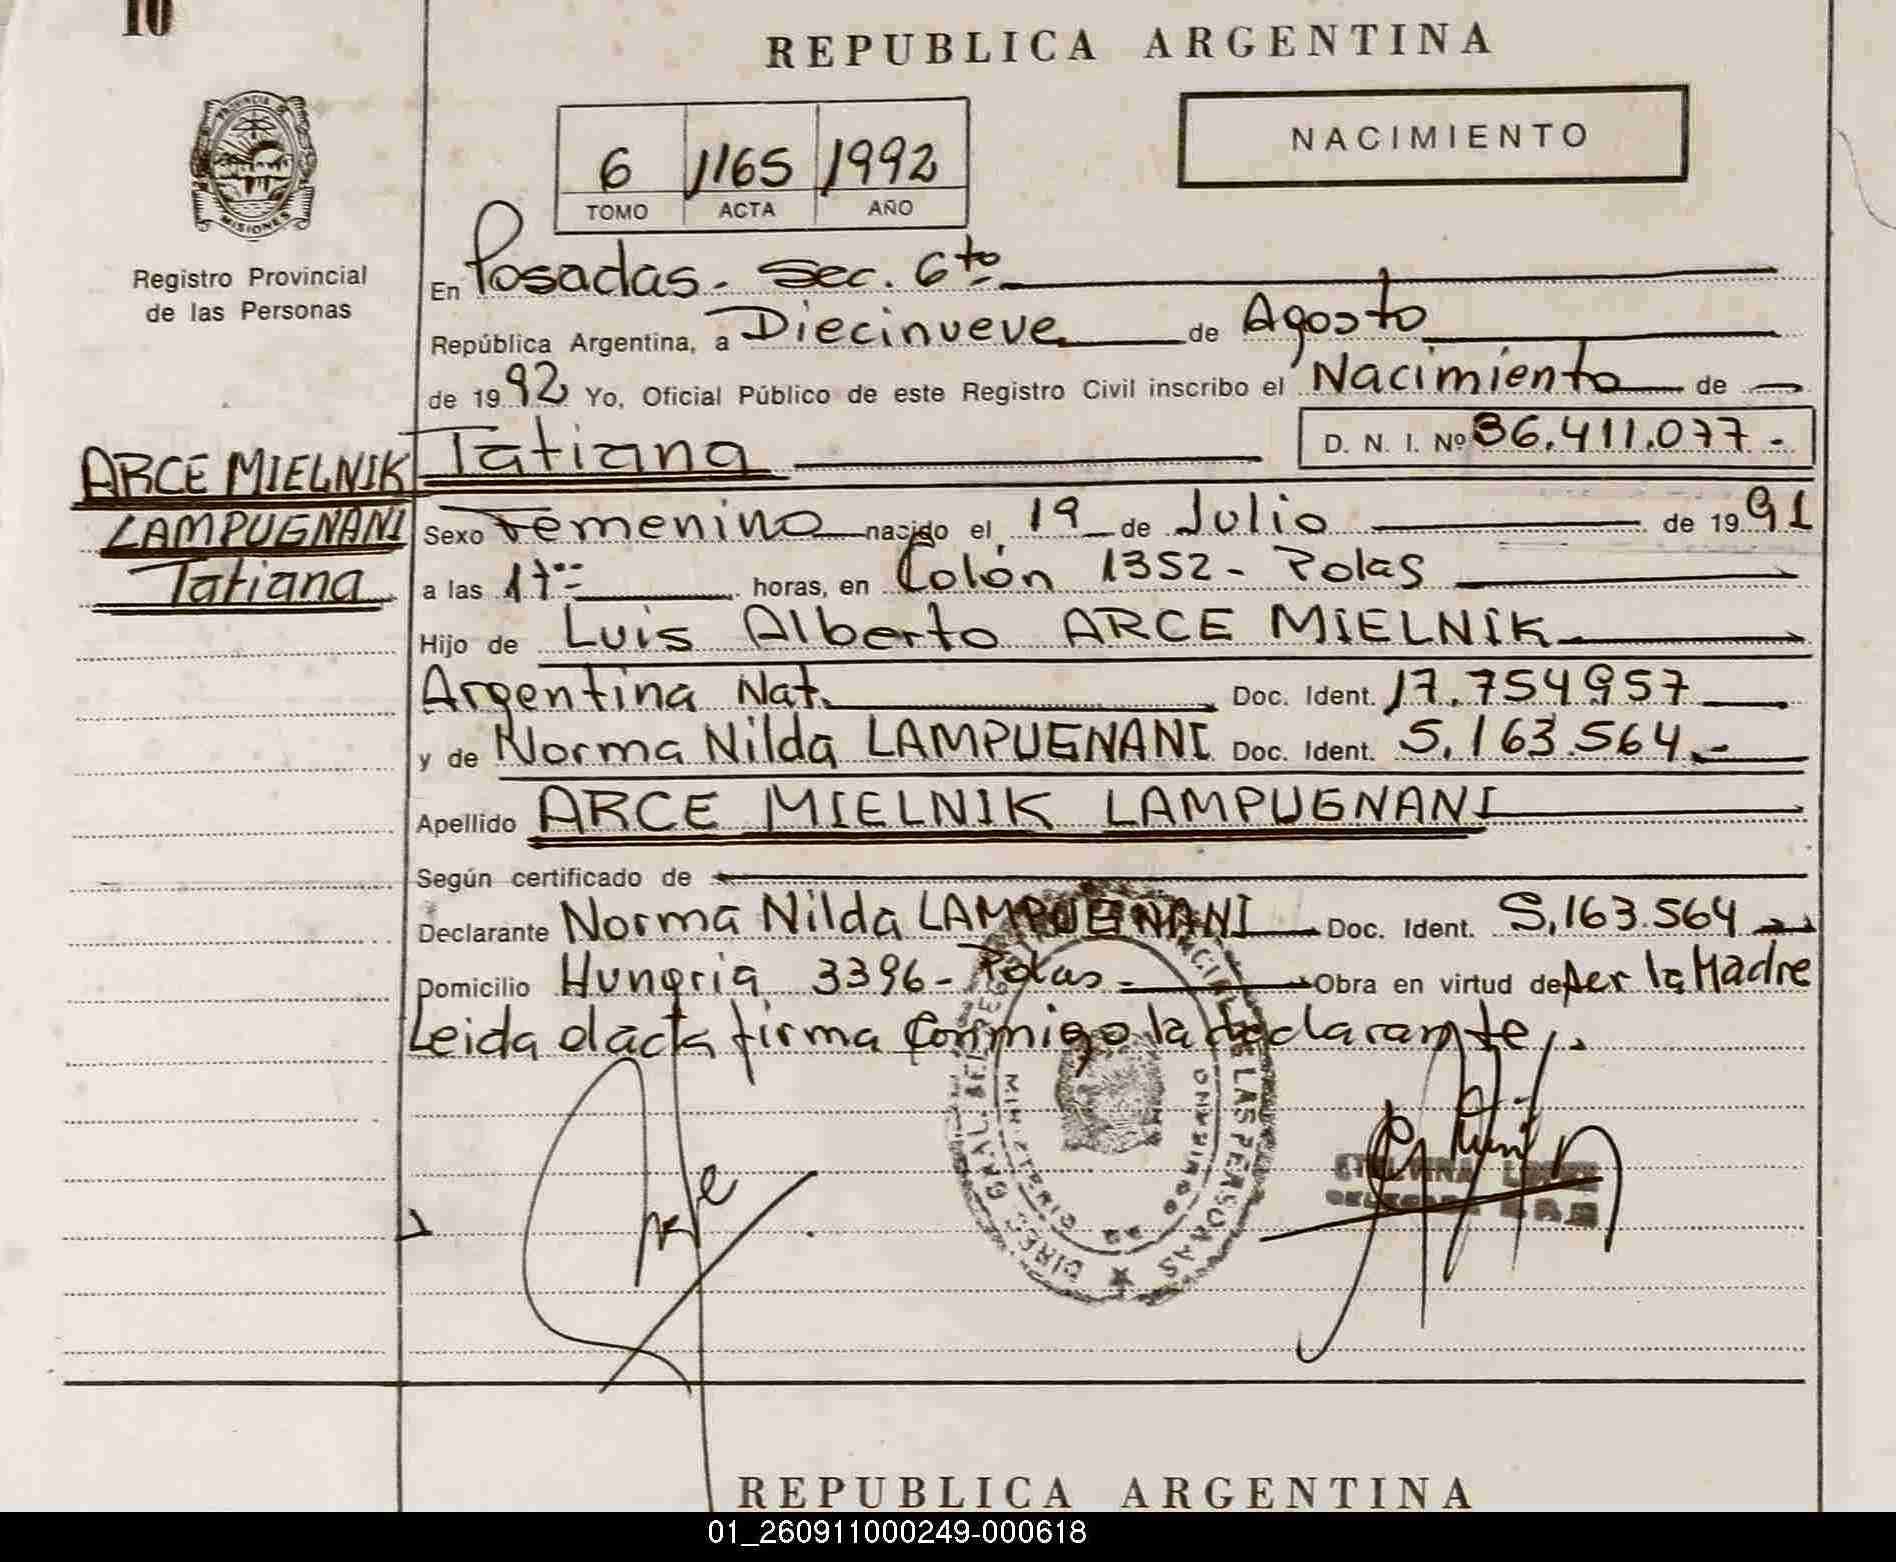 10
REPUBLICA ARGENTINA
PROVINCIA DE
MISIONES
Registro Provincial
de las Personas
6 1165 1992
TOMO ACTA AÑO
NACIMIENTO
En Posadas. Sec. 6to
República Argentina, a Diecinueve de Agosto
de 1992 Yo, Oficial Público de este Registro Civil inscribo el Nacimiento de
Tatiana D. N. I. Nº 36.411.077.-
ARCE MIELNIK
LAMPUGNANI
Tatiana
Sexo Femenino nacido el 19 de Julio de 1991
a las 17 horas, en Colón 1352- Pdas
Hijo de Luis Alberto ARCE MIELNIK
Argentina Nat. Doc. Ident. 17.754957
y de Norma Nilda LAMPUGNANI Doc. Ident. 5.163.564.-
Apellido ARCE MIELNIK LAMPUGNANI
Según certificado de
Declarante Norma Nilda LAMPUGNANI Doc. Ident. 5.163.564
Domicilio Hungria 3396- Pdas- Obra en virtud de ser la Madre
Leida el acta firma conmigo la declarante.
DE LAS PERSONAS
REPUBLICA ARGENTINA
01_260911000249-000618